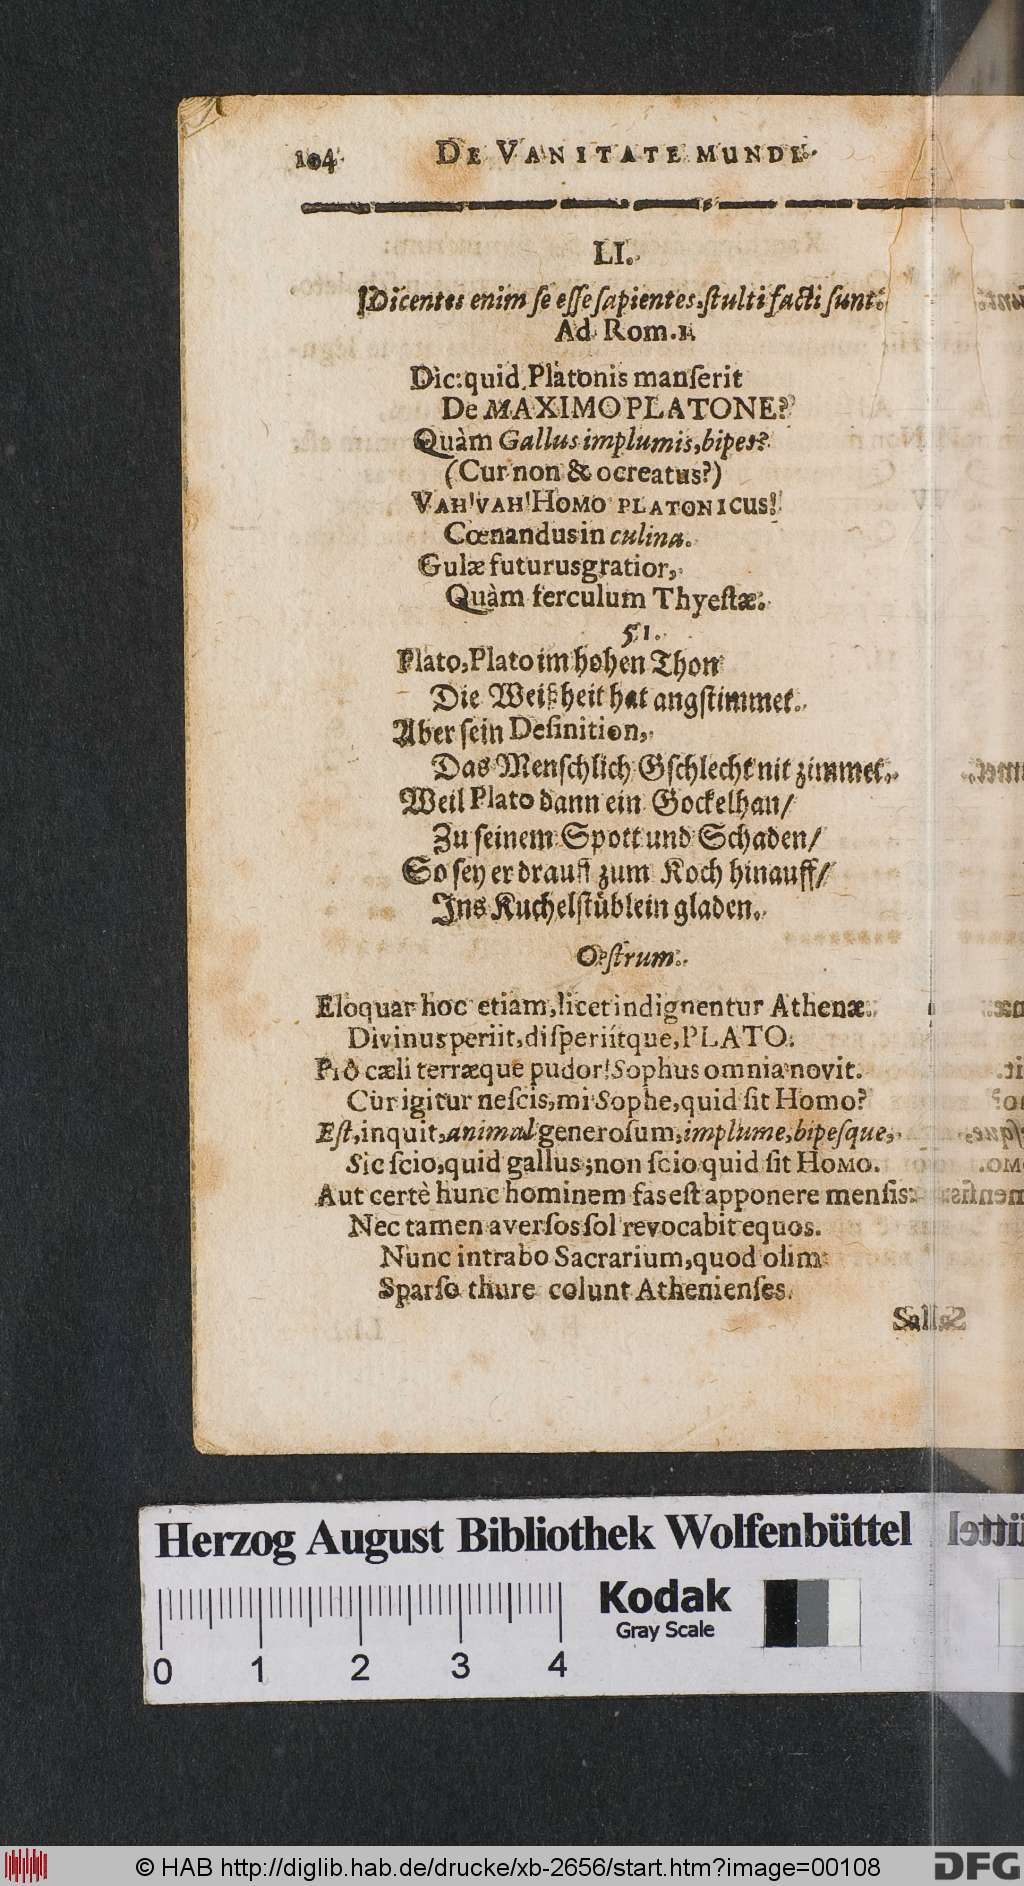 104 DE VANITATE MUNDI.
LI.
Dicentes enim ſe eſſe ſapientes, ſtulti facti ſunt.
Ad Rom. 1.
Dic: quid Platonis manſerit
De MAXIMO PLATONE?
Quàm Gallus implumis, bipes?
(Cur non & ocreatus?)
VAH! VAH! HOMO PLATONICUS!
Cœnandus in culina.
Gulæ futurus gratior,
Quàm ferculum Thyeſtæ.
51.
Plato, Plato im hohen Thon
Die Weißheit hat angſtimmet.
Aber ſein Definition,
Das Menſchlich Gſchlecht nit zimmet,
Weil Plato dann ein Gockelhan/
Zu ſeinem Spott und Schaden/
So ſey er drauff zum Koch hinauff/
Ins Kuchelſtüblein gladen.
Oeſtrum.
Eloquar hoc etiam, licet indignentur Athenæ.
Divinus periit, diſperiítque, PLATO.
Prô cæli terræque pudor! Sophus omnia novit.
Cur igitur neſcis, mi Sophe, quid ſit Homo?
Eſt, inquit, animal generoſum, implume, bipeſque,
Sic ſcio, quid gallus; non ſcio quid ſit HOMO.
Aut certè hunc hominem fas eſt apponere menſis:
Nec tamen averſos ſol revocabit equos.
Nunc intrabo Sacrarium, quod olim
Sparſo thure colunt Athenienſes.
Salſas
Herzog August Bibliothek Wolfenbüttel
Kodak
Gray Scale
0 1 2 3 4
© HAB http://diglib.hab.de/drucke/xb-2656/start.htm?image=00108
DFG